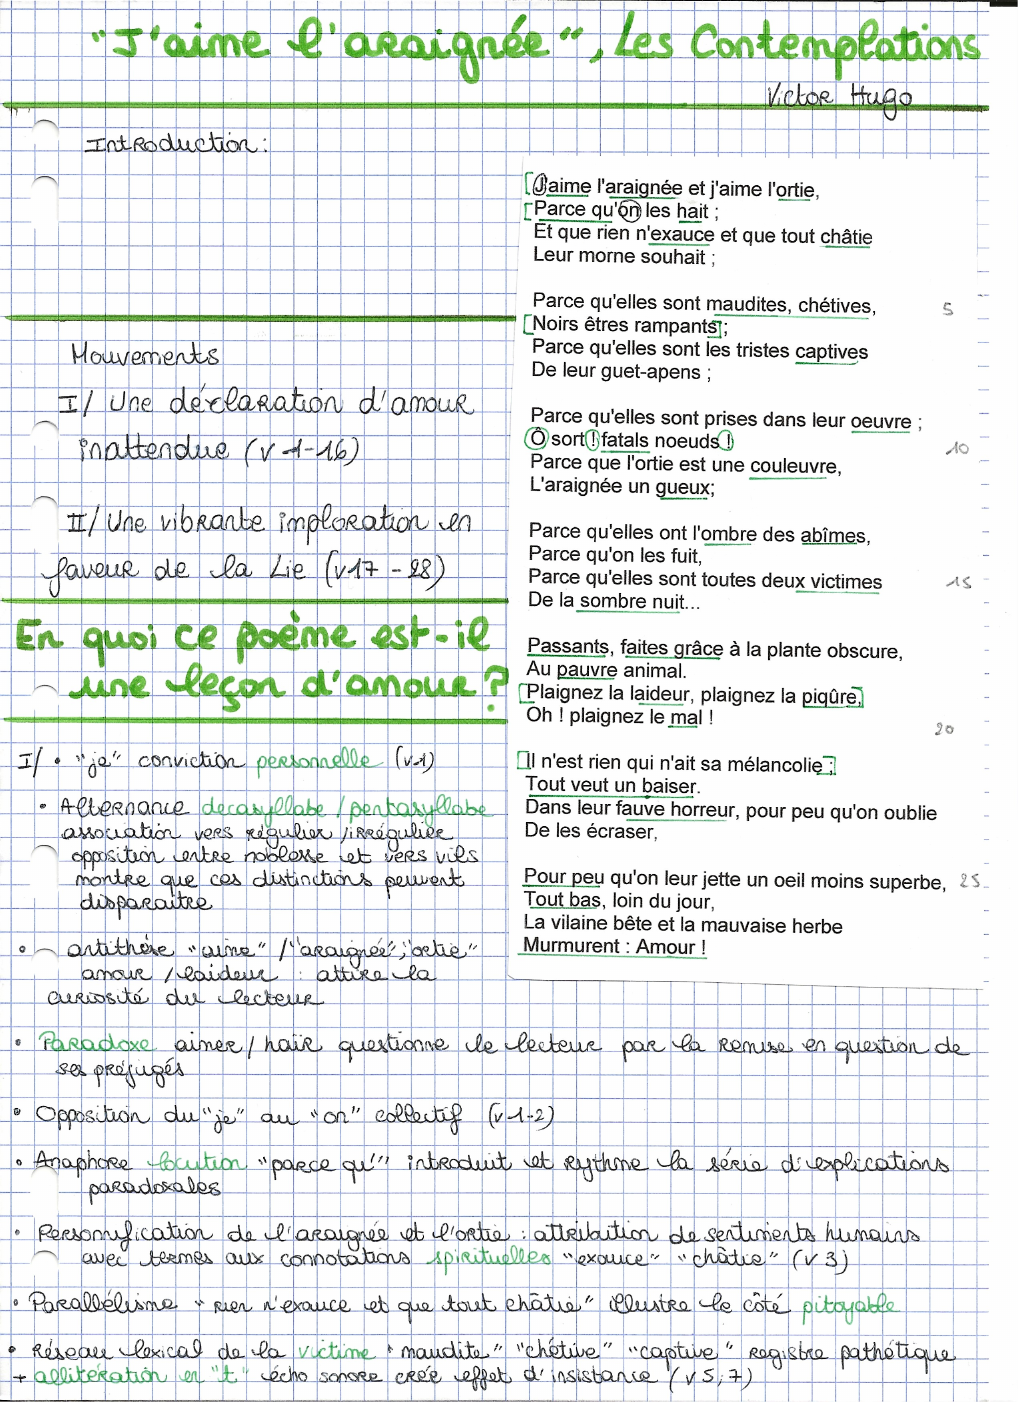 "J'aime l'araignée", Les Contemplations
Victor Hugo
Introduction :
J'aime l'araignée et j'aime l'ortie,
Parce qu'on les hait ;
Et que rien n'exauce et que tout châtie
Leur morne souhait ;
Parce qu'elles sont maudites, chétives, 5
Noirs êtres rampants ;
Parce qu'elles sont les tristes captives
De leur guet-apens ;
Parce qu'elles sont prises dans leur oeuvre ;
Ô sort ! fatals noeuds ! 10
Parce que l'ortie est une couleuvre,
L'araignée un gueux;
Parce qu'elles ont l'ombre des abîmes,
Parce qu'on les fuit,
Parce qu'elles sont toutes deux victimes 15
De la sombre nuit...
Passants, faites grâce à la plante obscure,
Au pauvre animal.
Plaignez la laideur, plaignez la piqûre,
Oh ! plaignez le mal !
20
Il n'est rien qui n'ait sa mélancolie ;
Tout veut un baiser.
Dans leur fauve horreur, pour peu qu'on oublie
De les écraser,
Pour peu qu'on leur jette un oeil moins superbe, 25
Tout bas, loin du jour,
La vilaine bête et la mauvaise herbe
Murmurent : Amour !
Mouvements
I/ Une déclaration d'amour
inattendue (v 1-16)
II/ Une vibrante imploration en
faveur de la Lie (v17 - 28)
En quoi ce poème est-il
une leçon d'amour ?
I/ • "je" conviction personnelle (v1)
• Alternance décasyllabe / pentasyllabe
association vers régulier / irrégulier
opposition entre noblesse et vers vils
montre que ces distinctions peuvent
disparaître
• antithèse "aime" / "araignée", "ortie"
amour / laideur : attire la
curiosité du lecteur
• Paradoxe aimer / haïr questionne le lecteur par la remise en question de
ses préjugés
• Opposition du "je" au "on" collectif (v 1-2)
• Anaphore locution "parce qu'" introduit et rythme la série d'explications
paradoxales
• Personnification de l'araignée et l'ortie : attribution de sentiments humains
avec termes aux connotations spirituelles "exauce" "châtie" (v 3)
• Parallélisme "rien n'exauce et que tout châtie" illustre le côté pitoyable
• Réseau lexical de la victime "maudite" "chétive" "captive" registre pathétique
+ allitération en "t" écho sonore crée effet d'insistance (v 5, 7)